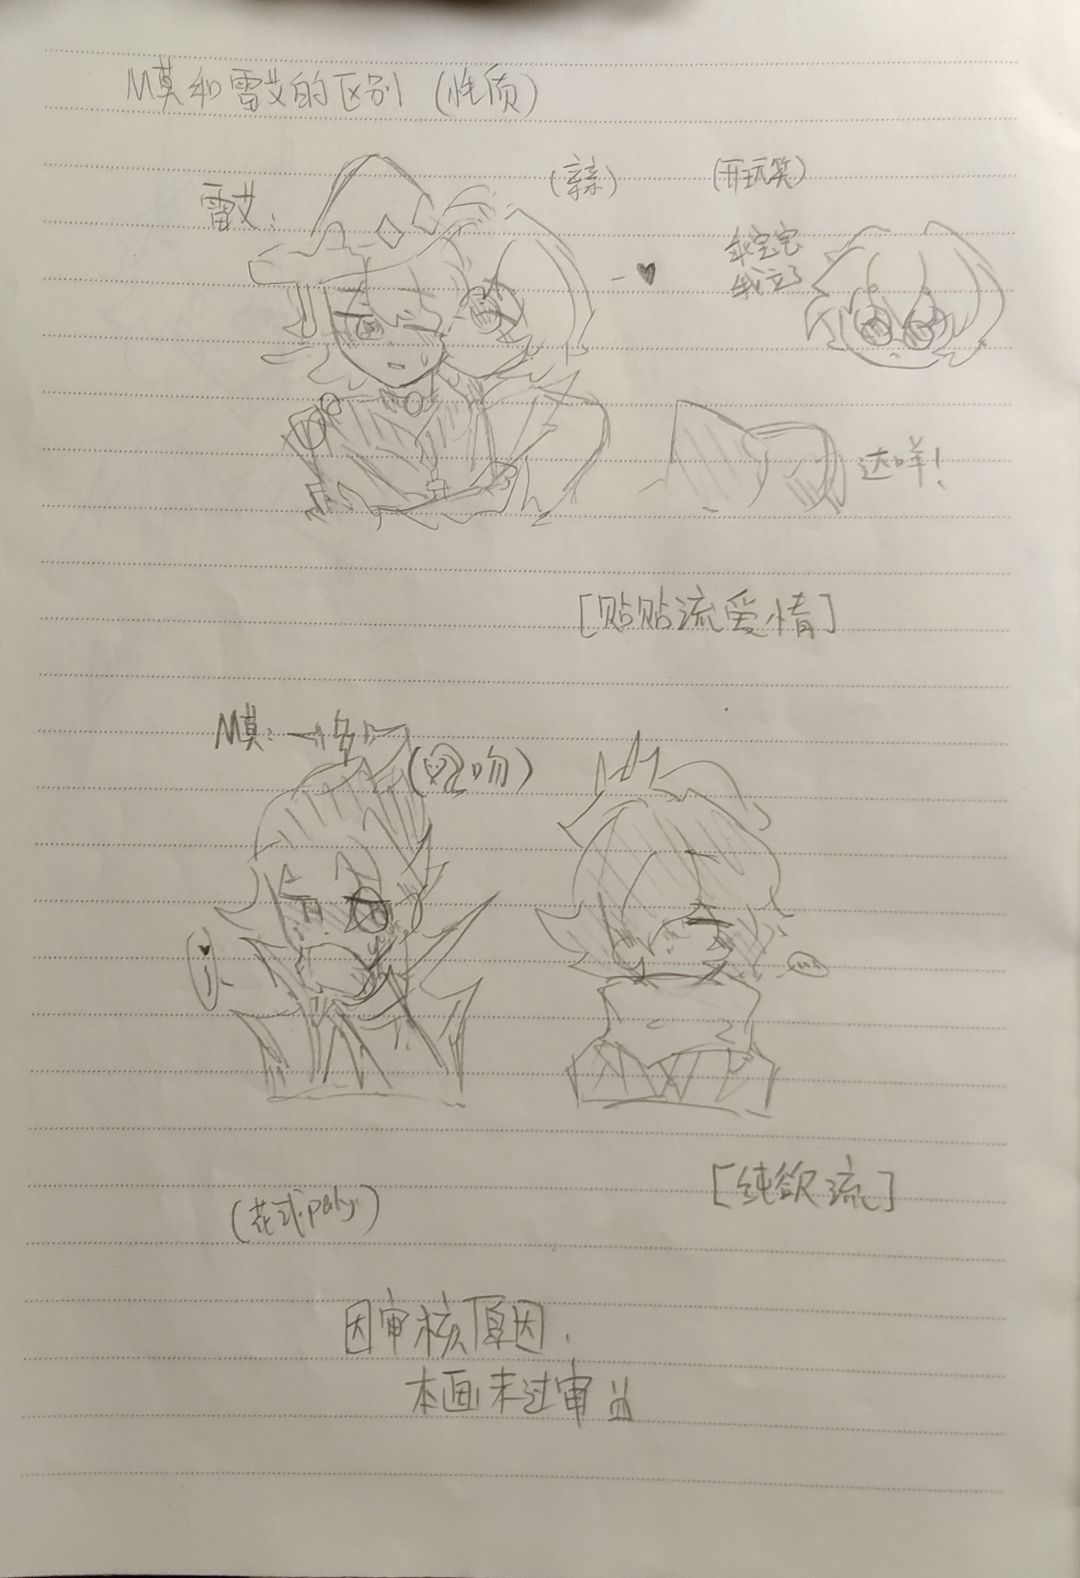 M莫和雷艾的区别（性质）
雷艾：
（亲）
（开玩笑）
乖宝宝
我立了
达咩！
[贴贴流爱情]
M莫：
吻）
[纯欲流]
（花式play）
因审核原因，
本画未过审